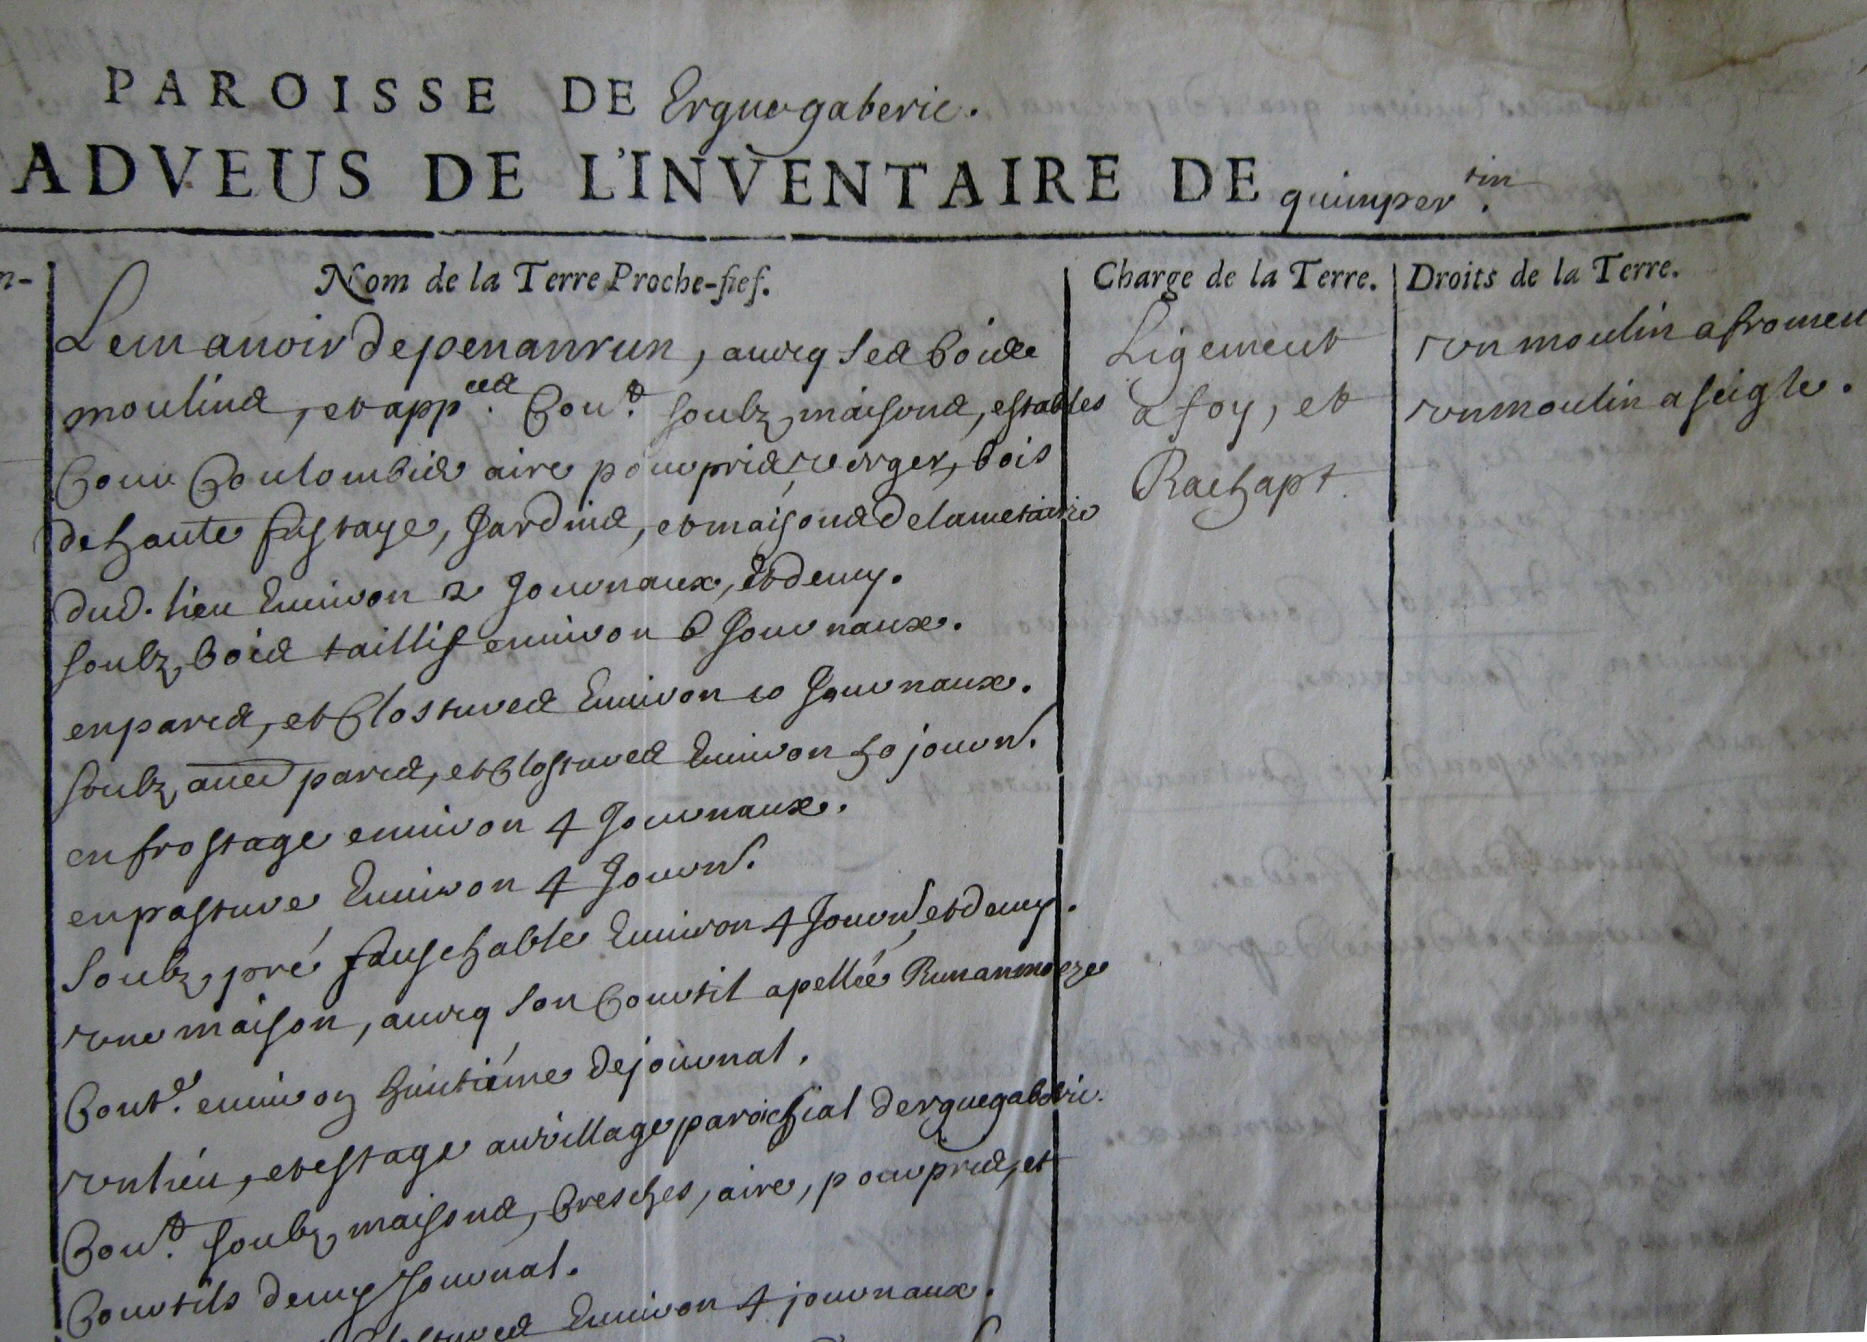 PAROISSE DE Erguegaberic.
ADVEUS DE L'INVENTAIRE DE quimper tin.
n-
Nom de la Terre Proche-fief.
Charge de la Terre.
Droits de la Terre.
Le manoir de penanrun, avecq ses bois
moulins, et app ces. Cont. soubz maisons, estables
Cour Coulombier aire pourpris, verger, bois
de haute fustaye, Jardins, et maisons de la metairie
dud. lieu Environ 2 Journaux, et demy.
soubz bois taillif environ 6 Journaux.
en parcs, et Clostures Environ 10 Journaux.
soubz autres parcs, et Clostures Environ 50 journ.
en frostage environ 4 Journaux.
en pasture Environ 4 Journ.
Soubz pré fauschable Environ 4 Journ. et demy.
une maison, avecq son Courtil apellée Runanmoeze
Cont. environ huictiéme de journal.
un lieu, et estage au village paroichial d'erguegaberic.
Cont. soubz maisons, Cresches, aire, pourpris, et
Courtils demy Journal.
Clostures Environ 4 journaux.
Ligement
a foy, et
Rachapt.
un moulin a fromen
un moulin a seigle.